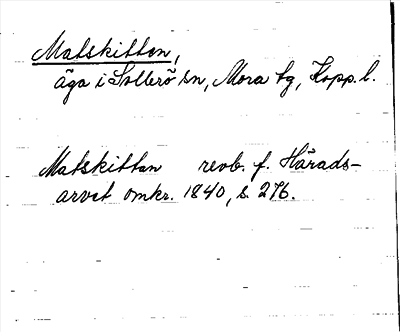 Matskittan,
äga i Sollerö sn, Mora tg, Kopp. l.
Matskittan revb. f. Härads-
arvet omkr. 1840, s. 276.